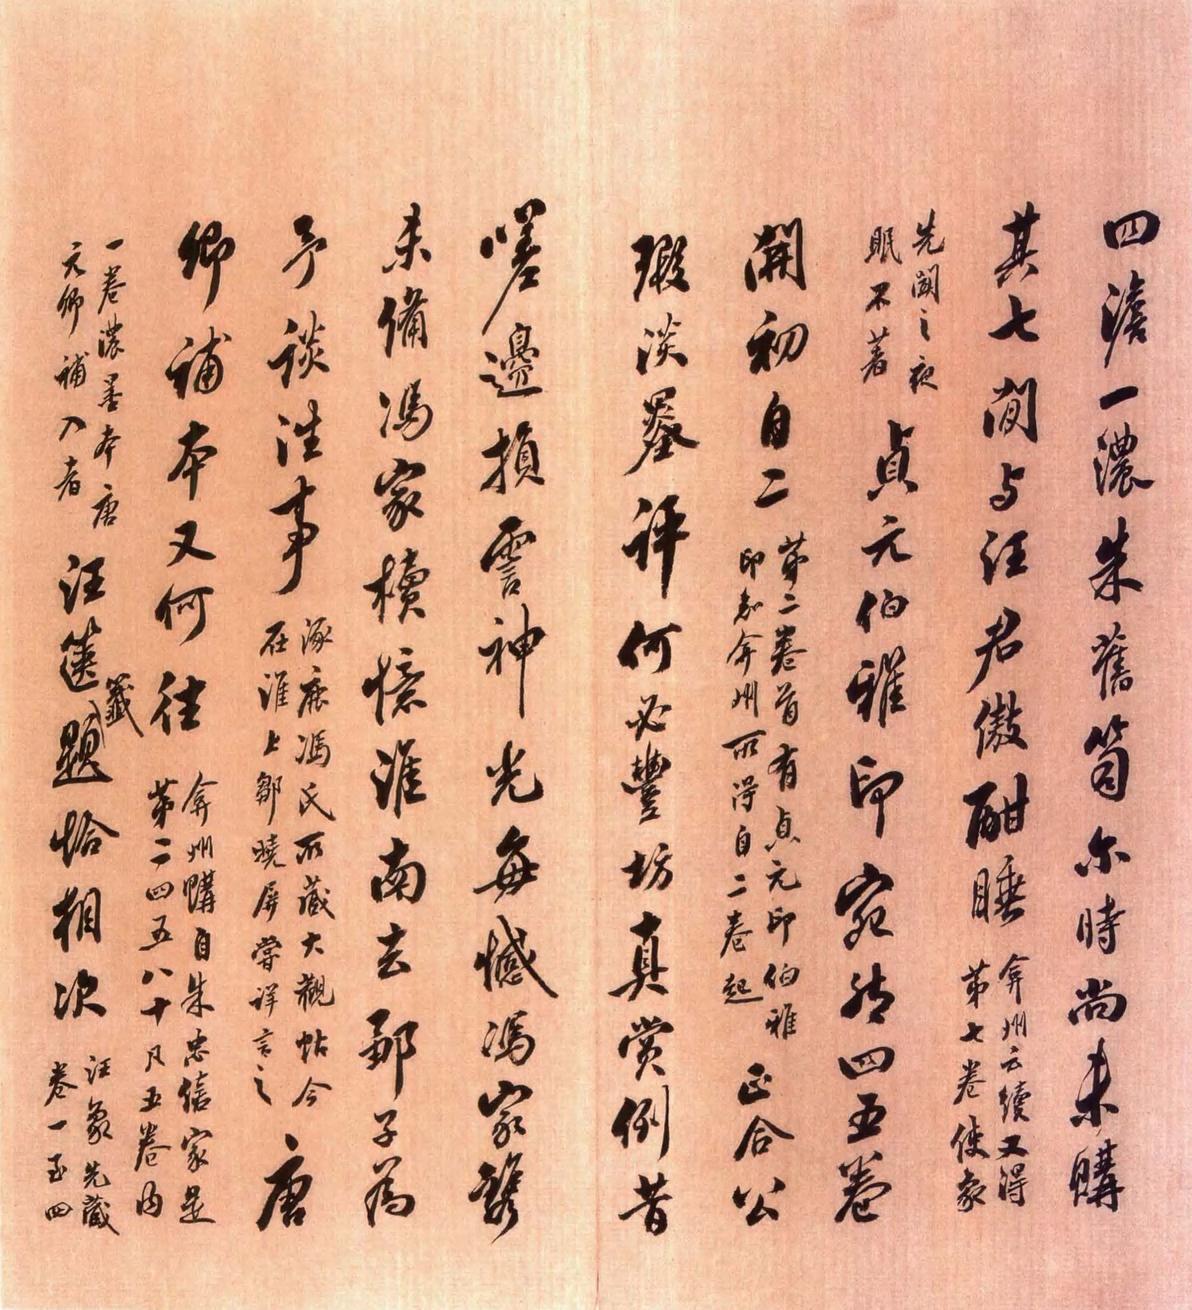 四澹一濃朱舊笥尔時尚未購
其七閒与汪君傲酣睡
弇州云續又得
第七卷使象
先閱之夜
眠不著
貞元伯雅印宛然四五卷
開初自二
第二卷首有貞元印伯雅
印知弇州所得自二卷起
正合公
瑕淡墨評何必豐坊真賞例昔
嗟邊損神光每憾馮家
未備馮家櫝憶淮南去鄒子為
予談往事
涿鹿馮氏所藏大觀帖今
在淮上鄒曉屏嘗詳言之
唐
卿補本又何往
弇州購自朱忠僖家是
第二四五八十凡五卷内
一卷濃墨本唐
元卿補入者
汪篋籤題恰相次
汪象先藏
卷一至四